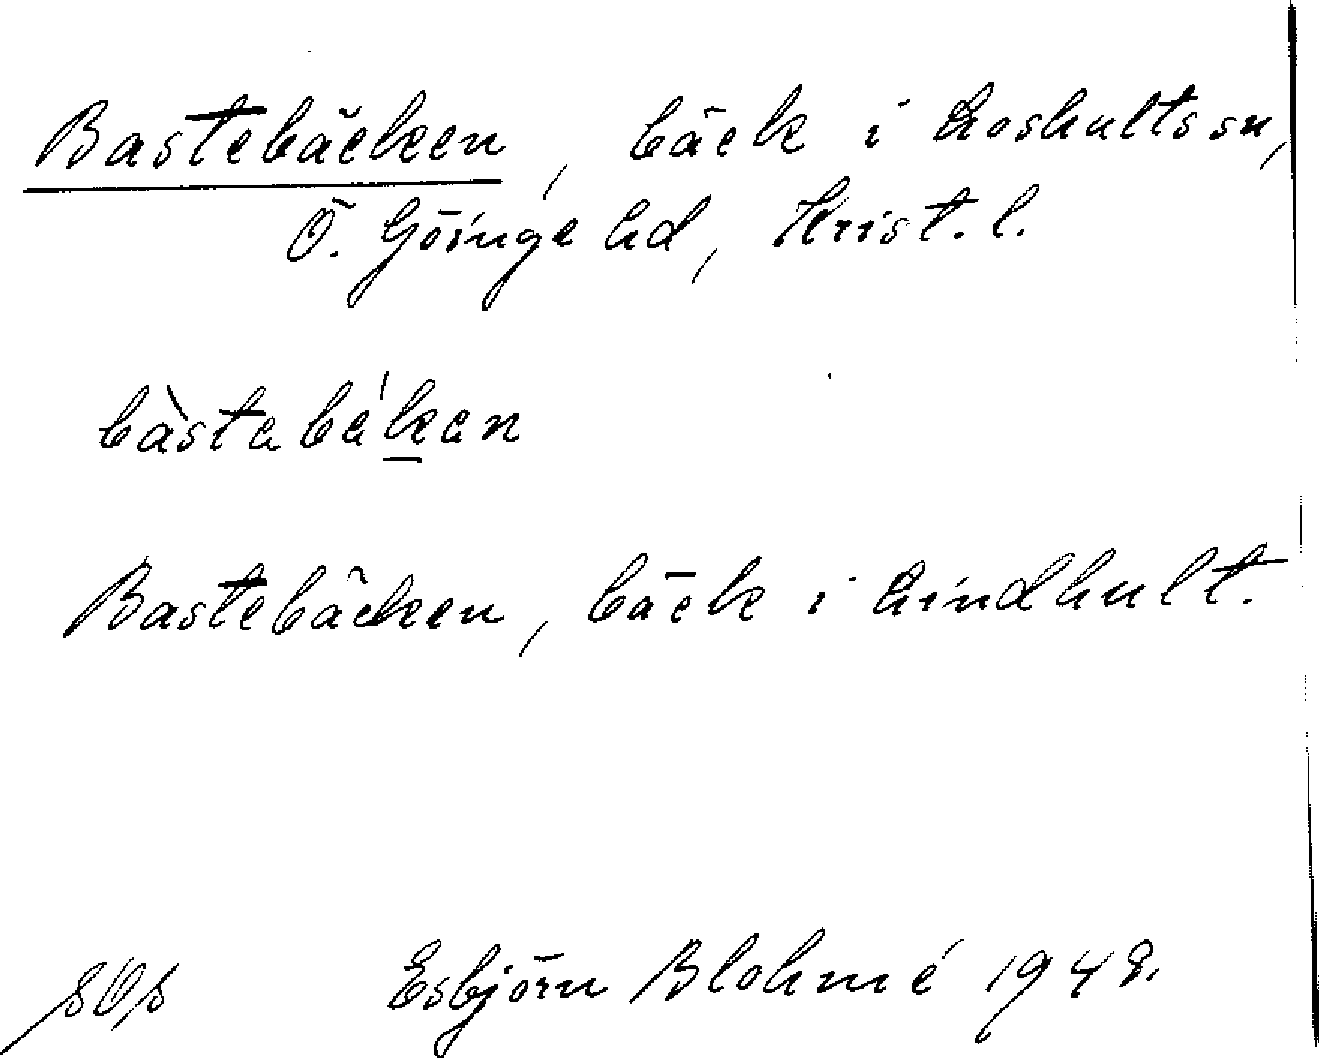 Bastebäcken, bäck i Loshults sn,
Ö. Göinge hd, Krist. l.
bàstabákan
Bastebäcken, bäck i Lindhult.
Esbjörn Blohmé 1948.